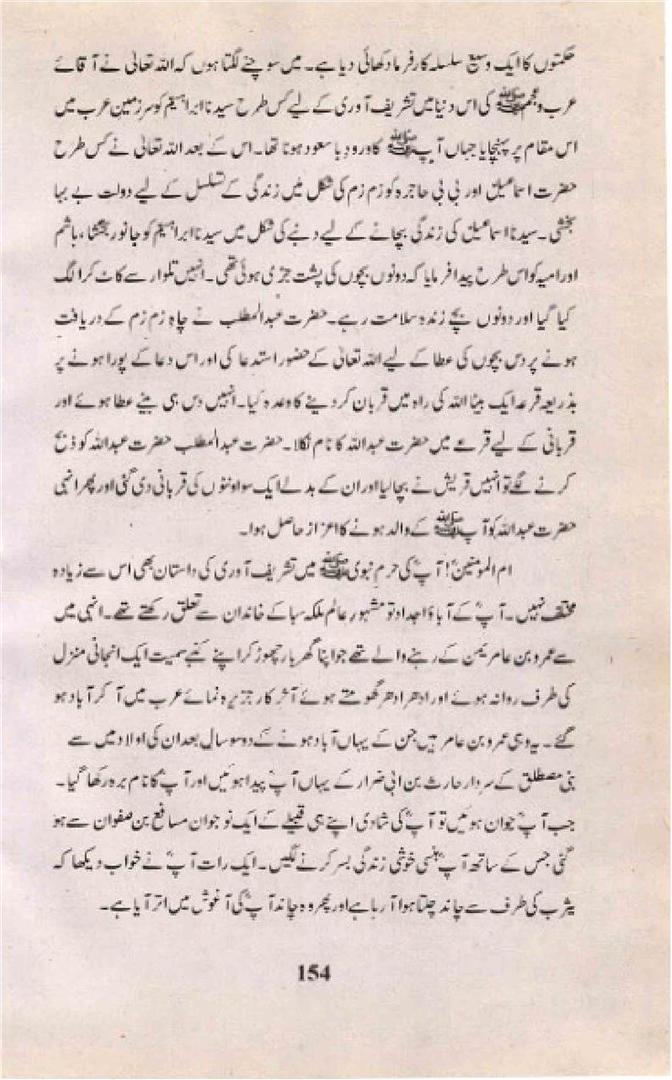 حکمتوں کا ایک وسیع سلسلہ کارفرما دکھائی دیا ہے۔ میں سوچنے لگتا ہوں کہ اللہ تعالیٰ نے آقائے
عرب وعجم ﷺ کی اس دنیا میں تشریف آوری کے لیے کس طرح سیدنا ابراہیمؑ کو سرزمین عرب میں
اس مقام پر پہنچایا جہاں آپ ﷺ کا ورود با سعود ہونا تھا۔ اس کے بعد اللہ تعالیٰ نے کس طرح
حضرت اسماعیلؑ اور بی بی حاجرہ کو زم زم کی شکل میں زندگی کے تسلسل کے لیے دولت بے بہا
بخشی۔ سیدنا اسماعیلؑ کی زندگی بچانے کے لیے دنبے کی شکل میں سیدنا ابراہیمؑ کو جانور بخشا، ہاشم
اور امیہ کو اس طرح پیدا فرمایا کہ دونوں بچوں کی پشت جڑی ہوئی تھی۔ انہیں تلوار سے کاٹ کر الگ
کیا گیا اور دونوں بچے زندہ سلامت رہے۔ حضرت عبدالمطلب نے چاہ زم زم کے دریافت
ہونے پر دس بچوں کی عطا کے لیے اللہ تعالیٰ کے حضور استدعا کی اور اس دعا کے پورا ہونے پر
بذریعہ قرعہ ایک بیٹا اللہ کی راہ میں قربان کر دینے کا وعدہ کیا۔ انہیں دس ہی بیٹے عطا ہوئے اور
قربانی کے لیے قرعے میں حضرت عبداللہ کا نام نکلا۔ حضرت عبدالمطلب حضرت عبداللہ کو ذبح
کرنے لگے تو انہیں قریش نے بچا لیا اور ان کے بدلے ایک سو اونٹوں کی قربانی دی گئی اور پھر انہی
حضرت عبداللہ کو آپ ﷺ کے والد ہونے کا اعزاز حاصل ہوا۔
ام المومنینؓ! آپؓ کی حرم نبوی ﷺ میں تشریف آوری کی داستان بھی اس سے زیادہ
مختلف نہیں۔ آپؓ کے آباؤ اجداد تو مشہور عالم ملکہ سبا کے خاندان سے تعلق رکھتے تھے۔ انہی میں
سے عمرو بن عامر یمن کے رہنے والے تھے جو اپنا گھر بار چھوڑ کر اپنے کنبے سمیت ایک انجانی منزل
کی طرف روانہ ہوئے اور ادھر ادھر گھومتے ہوئے آخر کار جزیرہ نمائے عرب میں آ کر آباد ہو
گئے۔ یہ وہی عمرو بن عامر ہیں جن کے یہاں آباد ہونے کے دو سو سال بعد ان کی اولاد میں سے
بنی مصطلق کے سردار حارث بن ابی ضرار کے یہاں آپؓ پیدا ہوئیں اور آپؓ کا نام برہ رکھا گیا۔
جب آپؓ جوان ہوئیں تو آپؓ کی شادی اپنے ہی قبیلے کے ایک نوجوان مسافع بن صفوان سے ہو
گئی جس کے ساتھ آپؓ ہنسی خوشی زندگی بسر کرنے لگیں۔ ایک رات آپؓ نے خواب دیکھا کہ
یثرب کی طرف سے چاند چلتا ہوا آ رہا ہے اور پھر وہ چاند آپؓ کی آغوش میں اتر آیا ہے۔
154